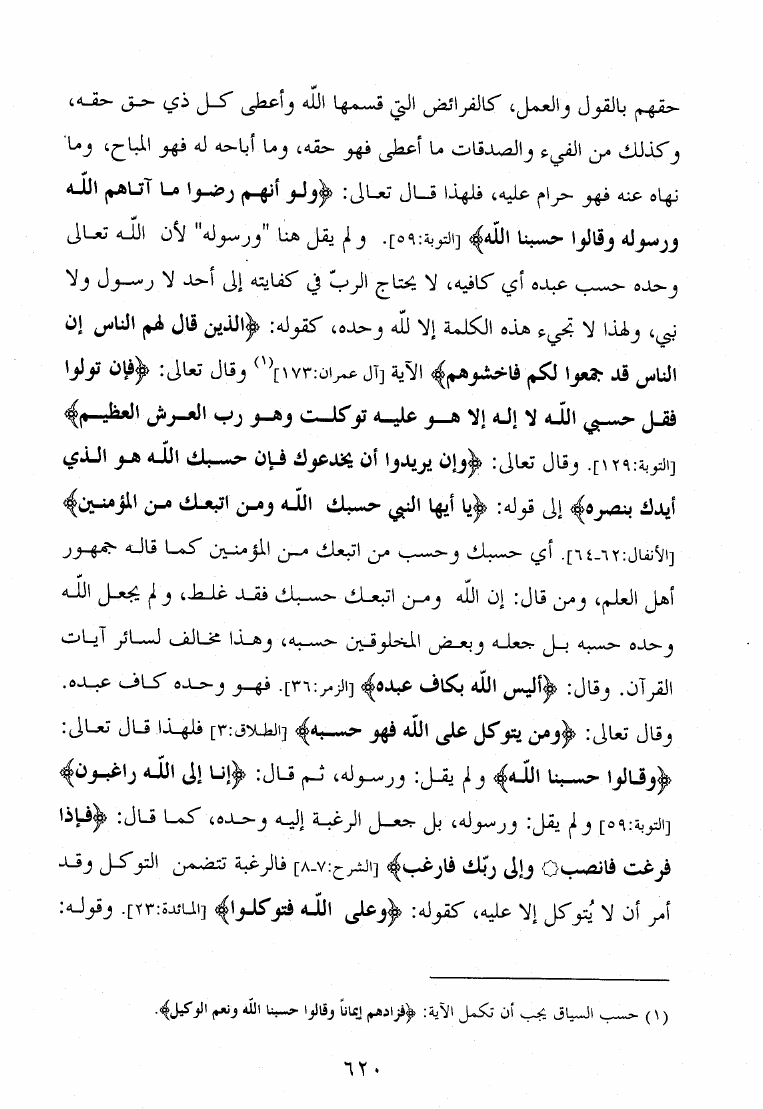 حقهم بالقول والعمل، كالفرائض التي قسمها الله وأعطى كل ذي حق حقه،
وكذلك من الفيء والصدقات ما أعطى فهو حقه، وما أباحه له فهو المباح، وما
نهاه عنه فهو حرام عليه، فلهذا قال تعالى: ﴿ولو أنهم رضوا ما آتاهم الله
ورسوله وقالوا حسبنا الله﴾ [التوبة:٥٩]. ولم يقل هنا "ورسوله" لأن الله تعالى
وحده حسب عبده أي كافيه، لا يحتاج الربّ في كفايته إلى أحد لا رسول ولا
نبي، ولهذا لا تجيء هذه الكلمة إلا لله وحده، كقوله: ﴿الذين قال لهم الناس إن
الناس قد جمعوا لكم فاخشوهم﴾ الآية [آل عمران:١٧٣](١) وقال تعالى: ﴿فإن تولوا
فقل حسبي الله لا إله إلا هو عليه توكلت وهو رب العرش العظيم﴾
[التوبة:١٢٩]. وقال تعالى: ﴿وإن يريدوا أن يخدعوك فإن حسبك الله هو الذي
أيدك بنصره﴾ إلى قوله: ﴿يا أيها النبي حسبك الله ومن اتبعك من المؤمنين﴾
[الأنفال:٦٢-٦٤]. أي حسبك وحسب من اتبعك من المؤمنين كما قاله جمهور
أهل العلم، ومن قال: إن الله ومن اتبعك حسبك فقد غلط، ولم يجعل الله
وحده حسبه بل جعله وبعض المخلوقين حسبه، وهذا مخالف لسائر آيات
القرآن. وقال: ﴿أليس الله بكاف عبده﴾ [الزمر:٣٦]. فهو وحده كاف عبده.
وقال تعالى: ﴿ومن يتوكل على الله فهو حسبه﴾ [الطلاق:٣] فلهذا قال تعالى:
﴿وقالوا حسبنا الله﴾ ولم يقل: ورسوله، ثم قال: ﴿إنا إلى الله راغبون﴾
[التوبة:٥٩] ولم يقل: ورسوله، بل جعل الرغبة إليه وحده، كما قال: ﴿فإذا
فرغت فانصب۝ وإلى ربّك فارغب﴾ [الشرح:٧-٨] فالرغبة تتضمن التوكل وقد
أمر أن لا يُتوكل إلا عليه، كقوله: ﴿وعلى الله فتوكلوا﴾ [المائدة:٢٣]. وقوله:
(١) حسب السياق يجب أن تكمل الآية: ﴿فزادهم إيماناً وقالوا حسبنا الله ونعم الوكيل﴾.
٦٢٠